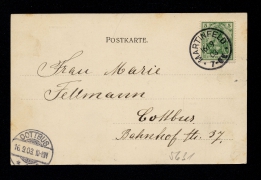 POSTKARTE.
MARTINFELD
7-8
Frau Marie
Feltmann
Cottbus
Bahnhof str. 37.
COTTBUS
16.9.03.10-11V
5631